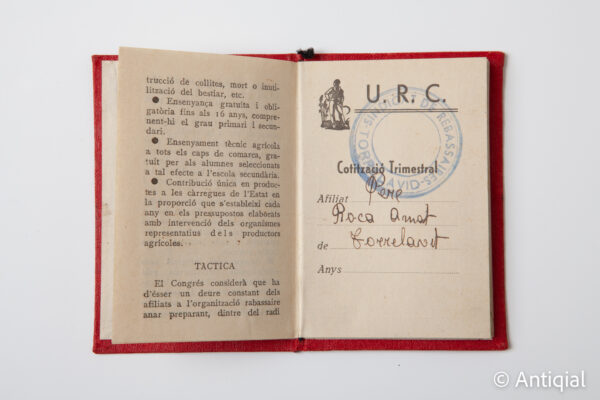 trucció de collites, mort o inuti-
lització del bestiar, etc.
● Ensenyança gratuita i obli-
gatòria fins als 16 anys, compre-
nent-hi el grau primari i secun-
dari.
● Ensenyament tècnic agrícola
a tots els caps de comarca, gra-
tuït per als alumnes seleccionats
a tal efecte a l'escola secundària.
● Contribució única en produc-
tes a les càrregues de l'Estat en
la proporció que s'estableixi cada
any en els pressupostos elaborats
amb intervenció dels organismes
representatius dels productors
agrícoles.
TACTICA
El Congrés considerà que ha
d'ésser un deure constant dels
afiliats a l'organització rabassaire
anar preparant, dintre del radi
U. R. C.
Cotització Trimestral
Afiliat Pere
Roca Amat
de Torrelavit
Anys
© Antiqial